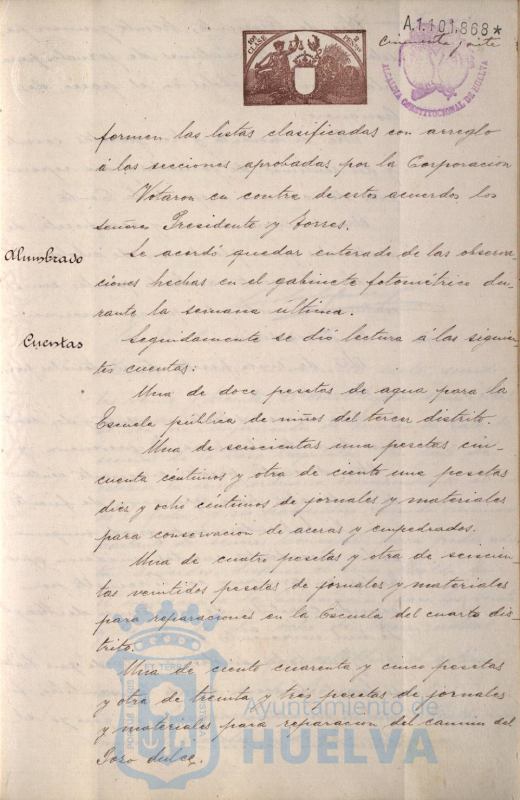 A.1.101.868*
10ª CLASE
2 PESETAS
ALCALDIA CONSTITUCIONAL DE HUELVA
cincuenta y siete
formen las listas clasificadas con arreglo
á las secciones aprobadas por la Corporacion
Votaron en contra de estos acuerdos los
señores Presidente y Torres.
Alumbrado
Se acordó quedar enterado de las observa
ciones hechas en el gabinete fotométrico du-
rante la semana última.
Cuentas
Seguidamente se dió lectura á las siguien-
tes cuentas:
Una de doce pesetas de agua para la
Escuela pública de niños del tercer distrito.
Una de seiscientas una pesetas cin-
cuenta céntimos y otra de ciento una pesetas
diez y ocho céntimos de jornales y materiales
para conservacion de aceras y empedrados.
Una de cuatro pesetas y otra de seiscien-
tas veintidos pesetas de jornales y materiales
para reparaciones en la Escuela del cuarto dis-
trito.
Una de ciento cuarenta y cinco pesetas
y otra de treinta y tres pesetas de jornales
y materiales para reparacion del camino del
Pozo dulce.
Ayuntamiento de
HUELVA